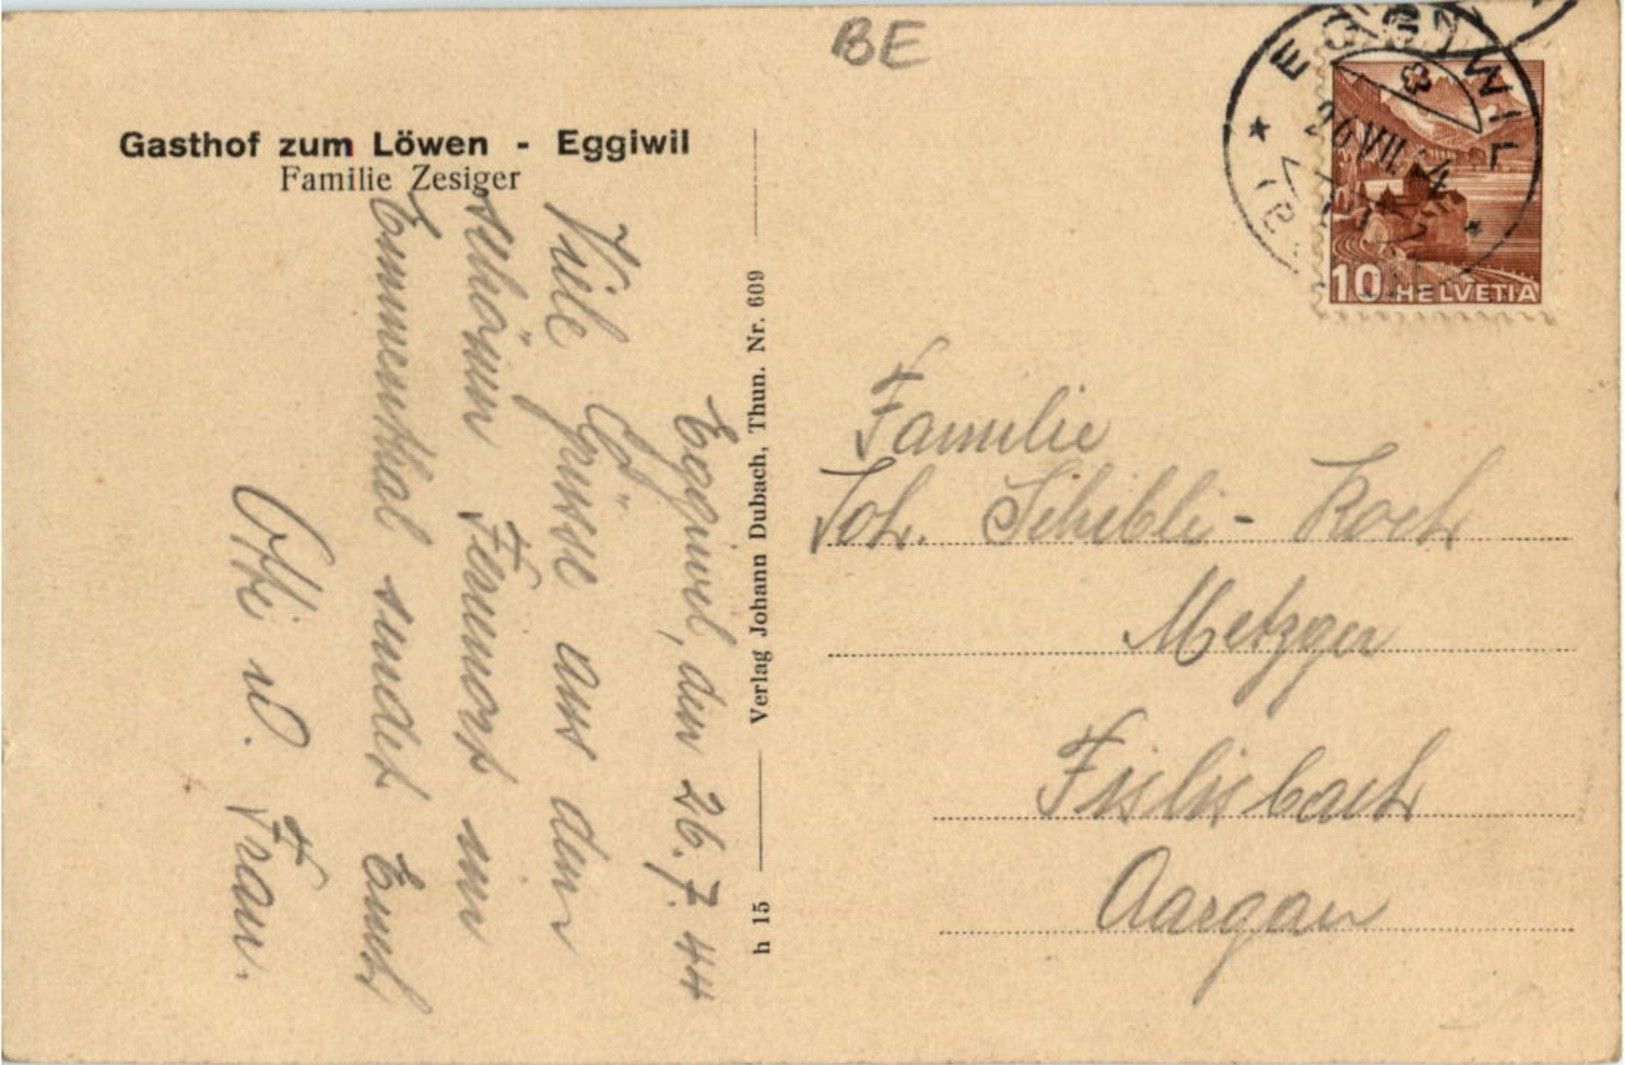 BE
Gasthof zum Löwen - Eggiwil
Familie Zesiger
Eggiwil, den 26.7.44
Viele Grüsse aus dem
schönen Ferienort im
Emmenthal sendet Euch
Otti u. Frau.
Verlag Johann Dubach, Thun. Nr. 609
h 15
EGGIWIL
26.VII.44
10 HELVETIA
Familie
Joh. Schibli-Koch
Metzger
Fislisbach
Aargau